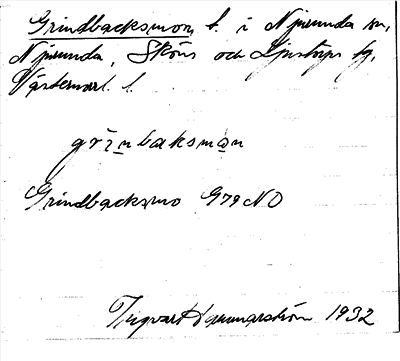 Grindbacksmon, b. i Njurunda sn,
Njurunda, Sköns och Ljustorps tg,
Västernorrl. l.
grinbaksmon
Grindbacksmo G79NO
Ingvar Hammarström 1932